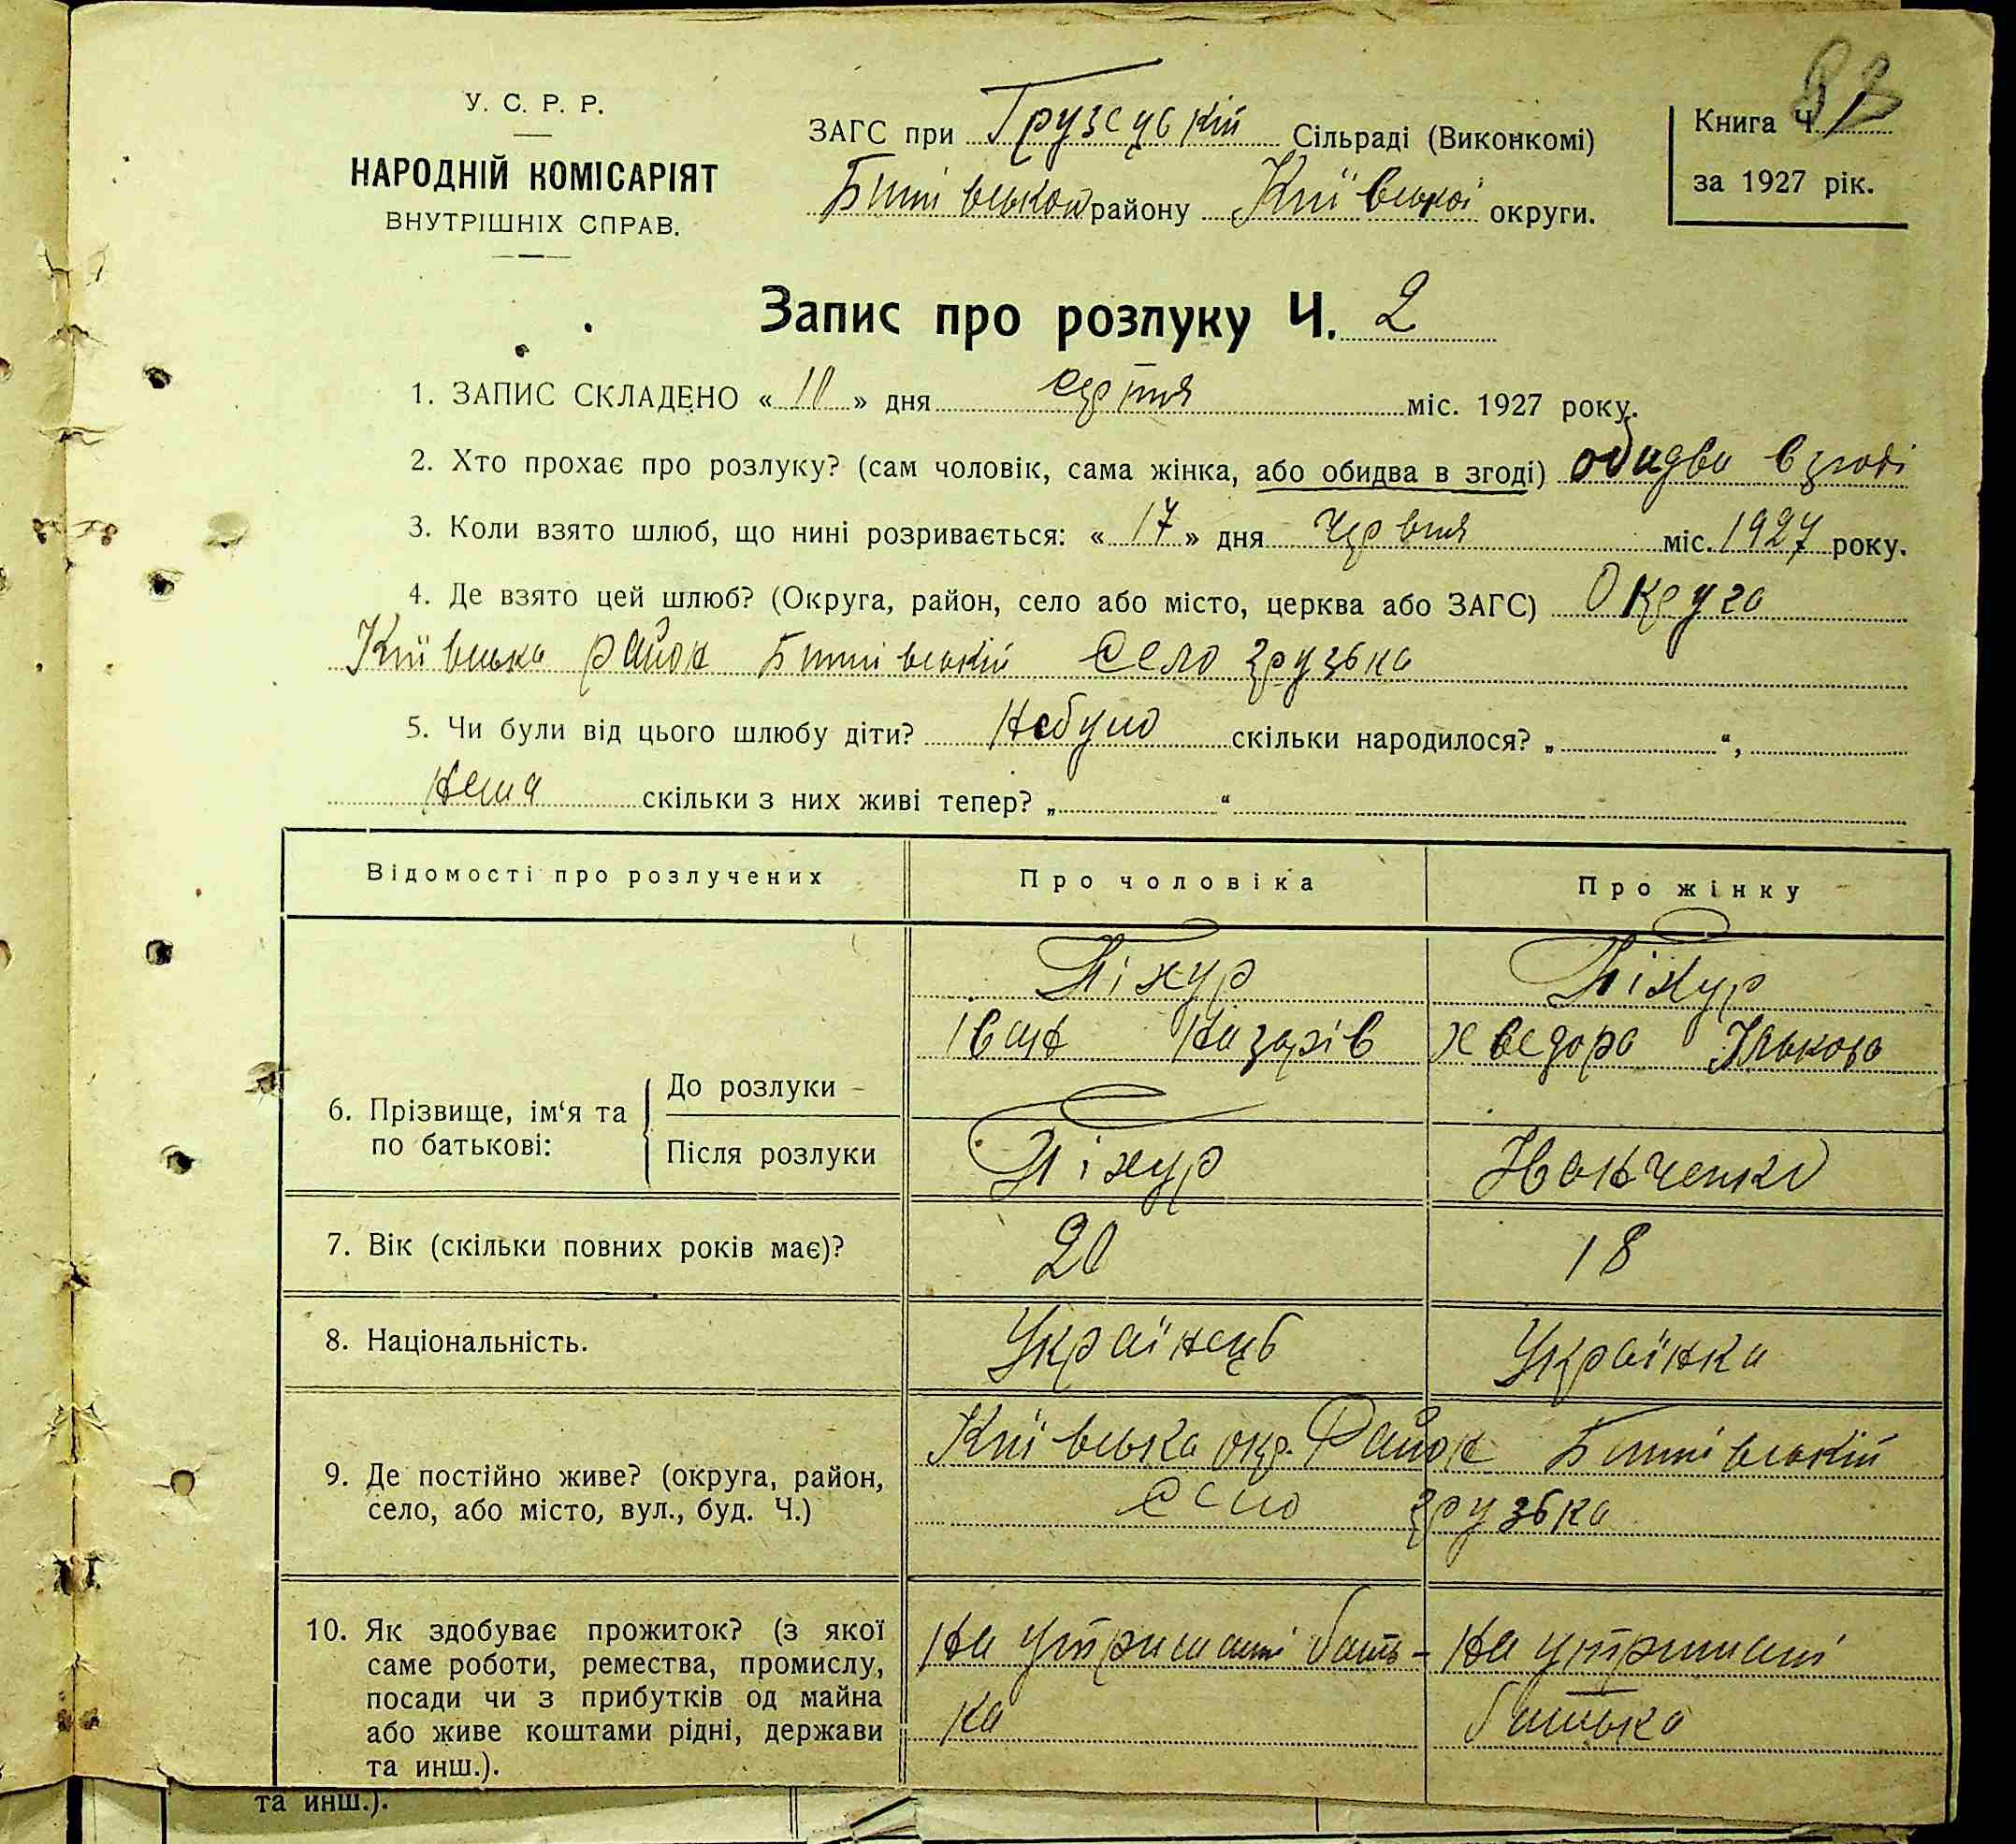 У. С. Р. Р.
НАРОДНІЙ КОМІСАРІЯТ
ВНУТРІШНІХ СПРАВ.
ЗАГС при Грузсцькій Сільраді (Виконкомі)
Бишівського району Київської округи.
Книга Ч. 1
за 1927 рік.
Запис про розлуку Ч. 2
1. ЗАПИС СКЛАДЕНО « 10 » дня серпня міс. 1927 року.
2. Хто прохає про розлуку? (сам чоловік, сама жінка, або обидва в згоді) обидва в згоді
3. Коли взято шлюб, що нині розривається: « 17 » дня червня міс. 1927 року.
4. Де взято цей шлюб? (Округа, район, село або місто, церква або ЗАГС) Округа
Київська район Бишівський село грузька
5. Чи були від цього шлюбу діти? Небуло скільки народилося? „ “,
Нема скільки з них живі тепер? „ “
Відомості про розлучених Про чоловіка Про жінку
6. Прізвище, ім‘я та по батькові:
До розлуки
Піхур Іван Назарів
Піхур Хведора Ількова
Після розлуки
Піхур
7. Вік (скільки повних років має)? 20 18
8. Національність. Українець Українка
9. Де постійно живе? (округа, район,
село, або місто, вул., буд. Ч.)
Київська окр. Район Бишівський
село грузька
10. Як здобуває прожиток? (з якої
саме роботи, ремества, промислу,
посади чи з прибутків од майна
або живе коштами рідні, держави
та инш.).
На утриманні бать-
ка
На утримані
батька
та инш.).